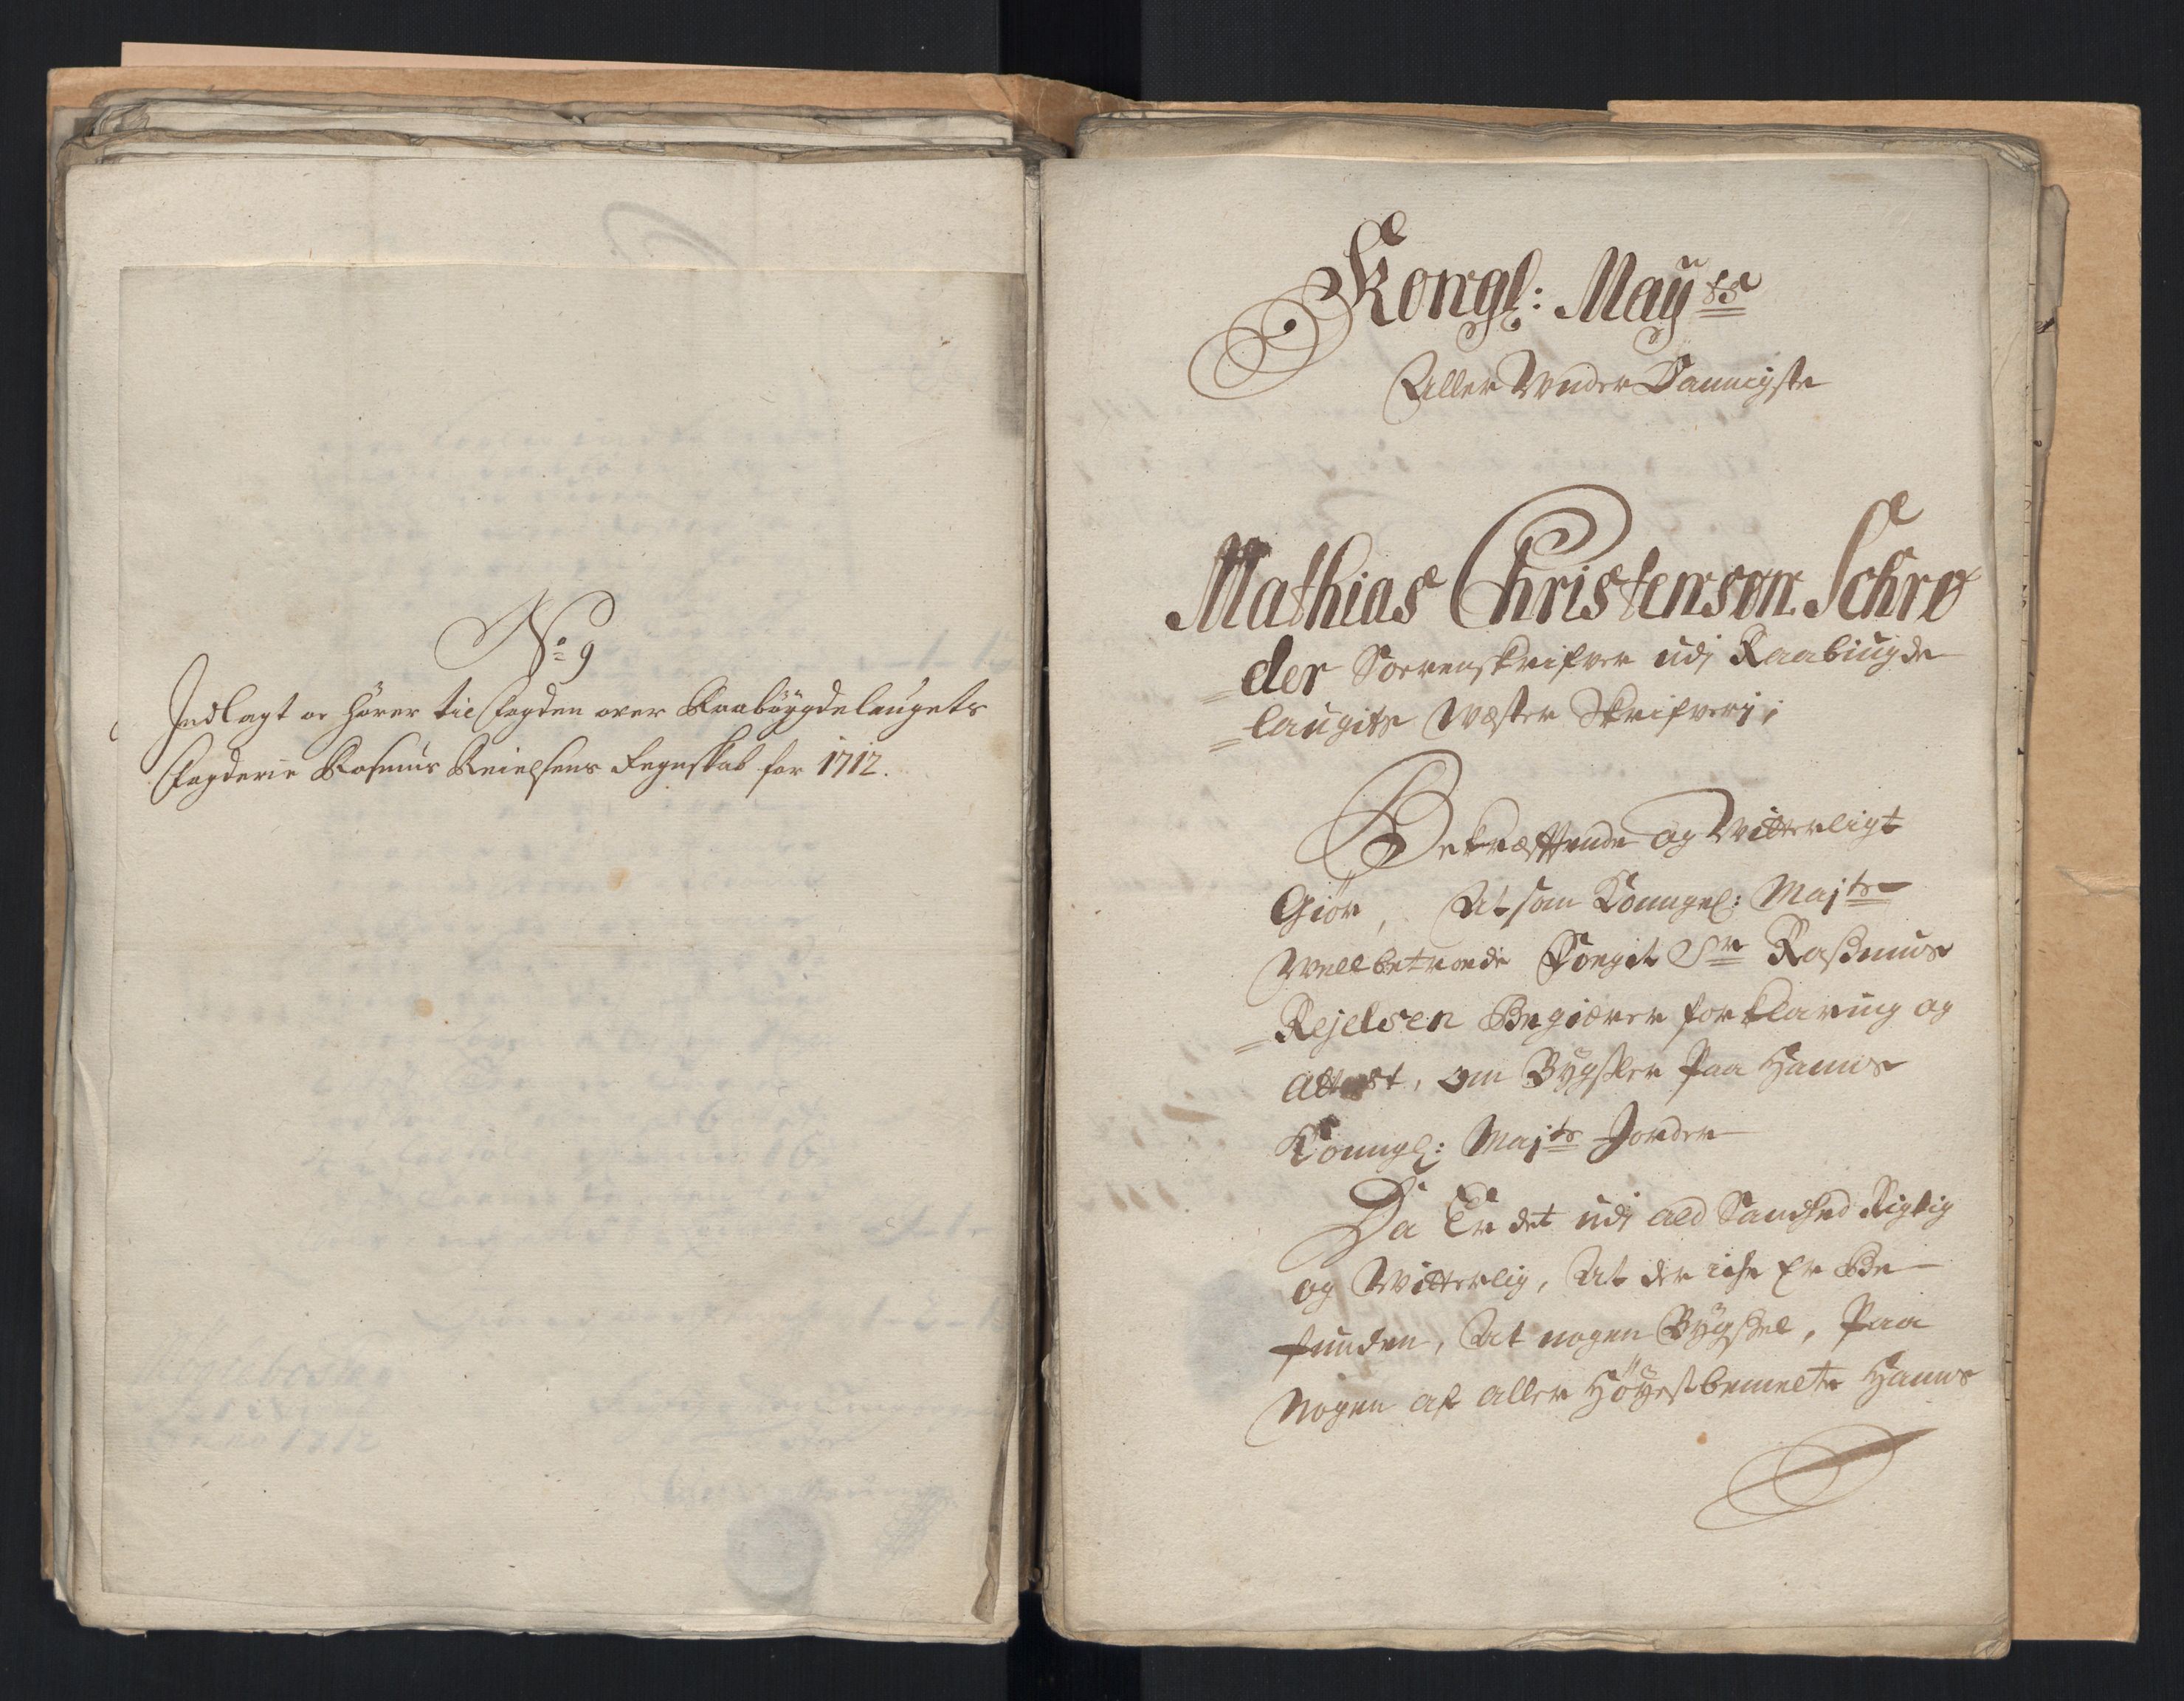 No 9
Indlagt og hører til fogden over Raabøygdelaugets
Fogderie Rasmus Reielsens Regnskab for 1712.
Kongl: Mayts
Aller Under Dannigste
Mathias Christensøn Schrø
der Sorenskrifver udj Raabiugde
laugits Wæster Skrifverj;
Bekræfftende og Witterligt
Giør, At som Konngel: Majts
Wellbetroede Foegit Sr Rasmus
Rejelsen Begiærer forklaring og
Attest, om Bygsler paa Hanns
Konngl: Majts Jorder
Da Er det udj ald Sandhed Rigtig
og Witterlig, At der iche Er Be
funden, At nogen Bygsel, Paa
Nogen af aller Høyestbemelte Hanns